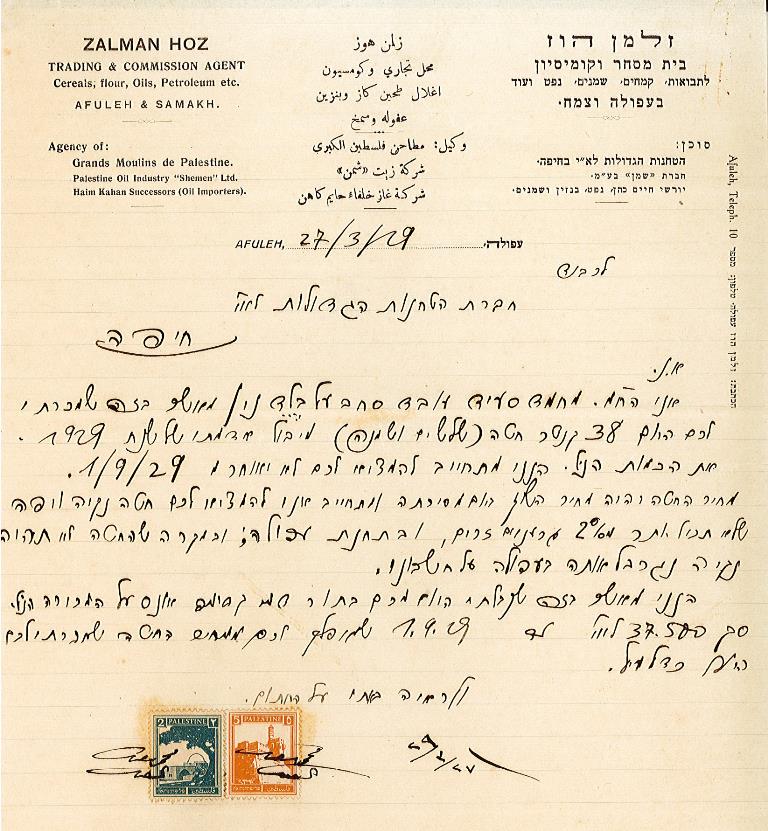 ZALMAN HOZ
TRADING & COMMISSION AGENT
Cereals, flour, Oils, Petroleum etc.
AFULEH & SAMAKH.
Agency of:
Grands Moulins de Palestine.
Palestine Oil Industry "Shemen" Ltd.
Haim Kahan Successors (Oil Importers).
زلمن هوز
محل تجاري وكومسيون
اغلال طحين كاز وبنزين
عفوله وسمخ
وكيل: مطاحن فلسطين الكبرى
شركة زيت «شمن»
شركة غاز خلفاء حايم كاهن
זלמן הוז
בית מסחר וקומיסיון
לתבואות, קמחים, שמנים, נפט ועוד
בעפולה וצמח.
סוכן:
הטחנות הגדולות לא"י בחיפה.
חברת "שמן" בע"מ.
יורשי חיים כהן, נפט, בנזין ושמנים.
Afuleh, Teleph. 10
AFULEH, 27/3/29 עפולה,
לכבוד
חברת הטחנות הגדולות לא"י
חיפה
א.נ.
אני הח"מ. מחמד סעיד עובד מאשר בזה שמכרתי
לכם היום 38 קנטר חטה (שלשים ושמנה) מיבול אדמתי של שנת 1929.
את הכמות הנ"ל הנני מתחייב להמציא לכם לא יאוחר מ 1/9/29.
מחיר החטה יהיה מחיר השוק ביום מסירתה ומתחייב אני להמציא לכם חטה נקיה ויפה
שלא תכיל יותר מ 2% גרעינים זרים, ובתחנת עפולה; ובמקרה שהחטה לא תהיה
נקיה נגרבל אותה בעפולה על חשבוני.
הנני מאשר בזה שקבלתי היום מכם בתור על המכירה הנ"ל
סך 37.500 לא"י עד 1.9.29 לכם ממחיר החטה שמכרתי לכם
הנ"ל כדלעיל.
ולראיה באתי על החתום.
2 PALESTINE ٢
5 PALESTINE ٥